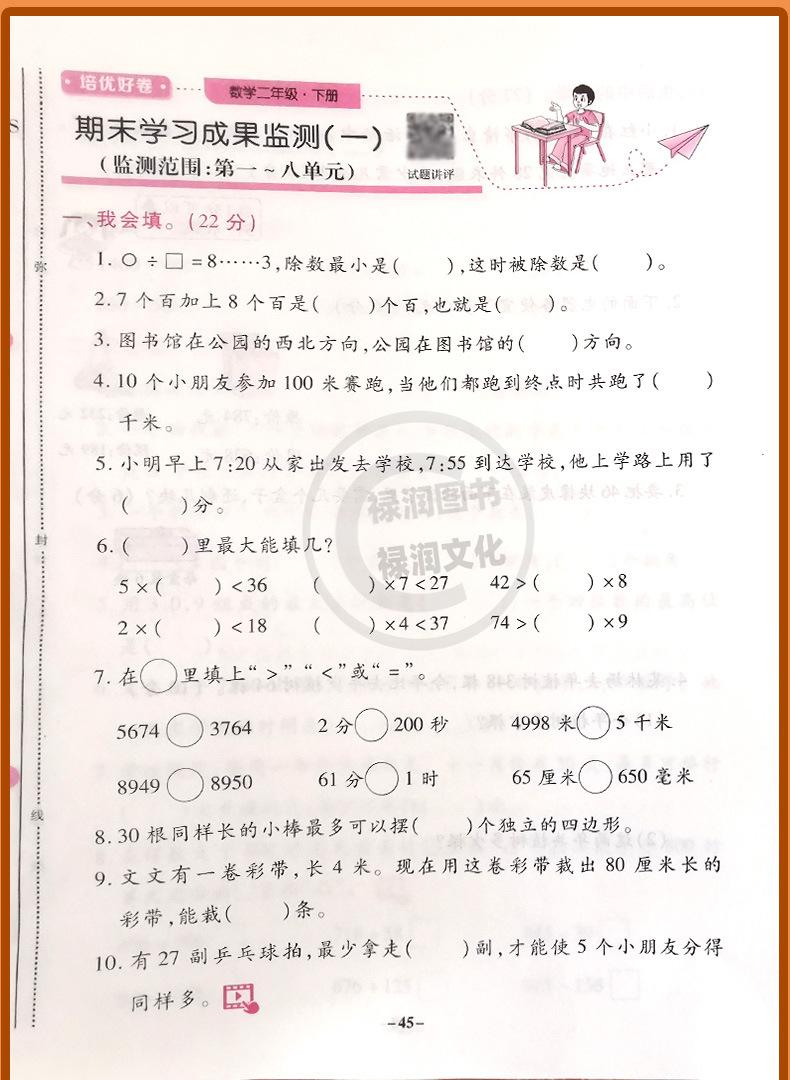 培优好卷
数学二年级·下册
期末学习成果监测(一)
(监测范围:第一~八单元)
试题讲评
一、我会填。(22分)
1. ○÷□=8……3,除数最小是( ),这时被除数是( )。
2. 7个百加上8个百是( )个百,也就是( )。
3. 图书馆在公园的西北方向,公园在图书馆的( )方向。
4. 10个小朋友参加100米赛跑,当他们都跑到终点时共跑了( )
千米。
5. 小明早上7:20从家出发去学校,7:55到达学校,他上学路上用了
( )分。
6. ( )里最大能填几?
5×( )<36 ( )×7<27 42>( )×8
2×( )<18 ( )×4<37 74>( )×9
7. 在○里填上“>”“<”或“=”。
5674○3764 2分○200秒 4998米○5千米
8949○8950 61分○1时 65厘米○650毫米
8. 30根同样长的小棒最多可以摆( )个独立的四边形。
9. 文文有一卷彩带,长4米。现在用这卷彩带裁出80厘米长的
彩带,能裁( )条。
10. 有27副乒乓球拍,最少拿走( )副,才能使5个小朋友分得
同样多。
-45-
弥
封
线
禄润图书
禄润文化